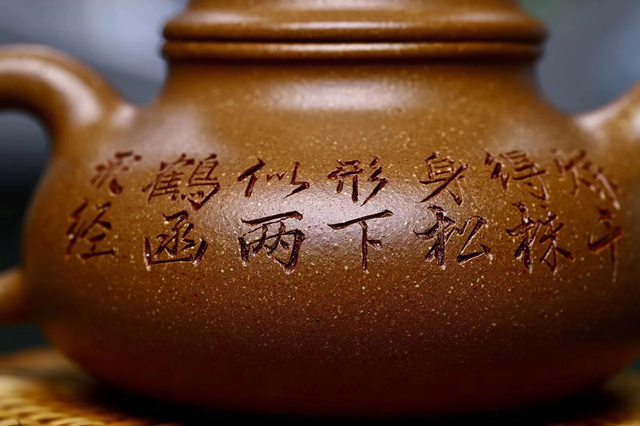 炼得身形似鶴形
千株松下两函经